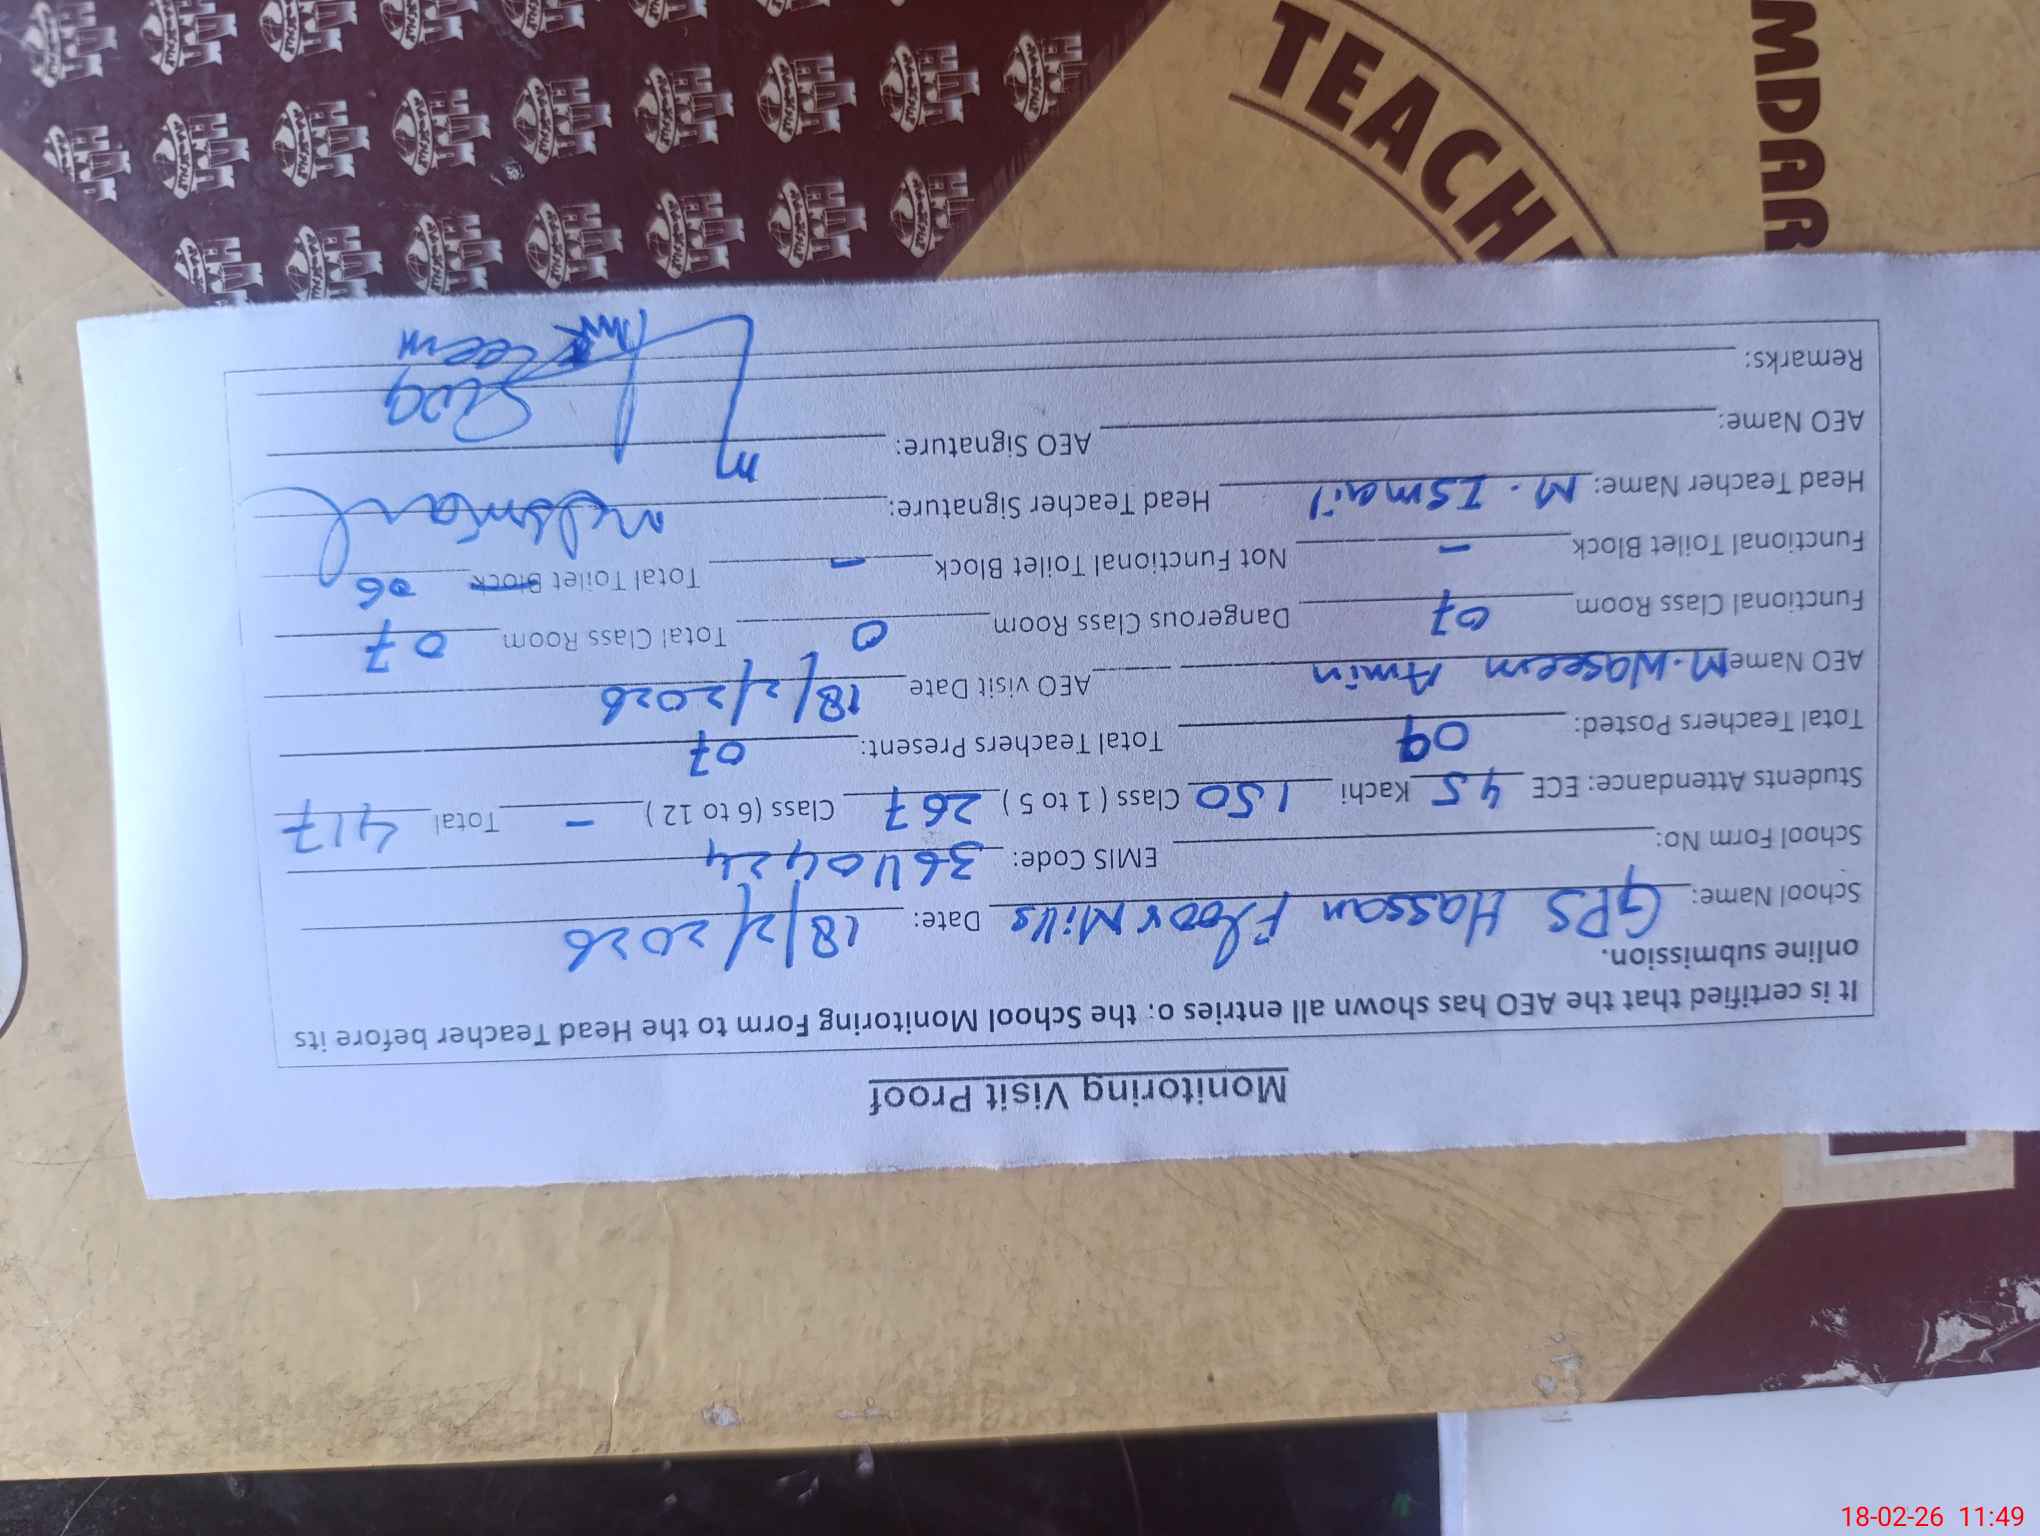 Monitoring Visit Proof
It is certified that the AEO has shown all entries o: the School Monitoring Form to the Head Teacher before its
online submission.
School Name: GPS Hassan Floor Mills Date: 18/2/2026
School Form No: EMIS Code: 36440424
Students Attendance: ECE 45 Kachi 150 Class ( 1 to 5 ) 267 Class (6 to 12 ) - Total 417
Total Teachers Posted: 09 Total Teachers Present: 07
AEO Name M.Waseem Amin AEO visit Date 18/2/2026
Functional Class Room 07 Dangerous Class Room 0 Total Class Room 07
Functional Toilet Block - Not Functional Toilet Block - Total Toilet Block 06
Head Teacher Name: M. Ismail Head Teacher Signature: M Ismail
AEO Name: AEO Signature:
Remarks:
TEACH
MDAR
18-02-26 11:49